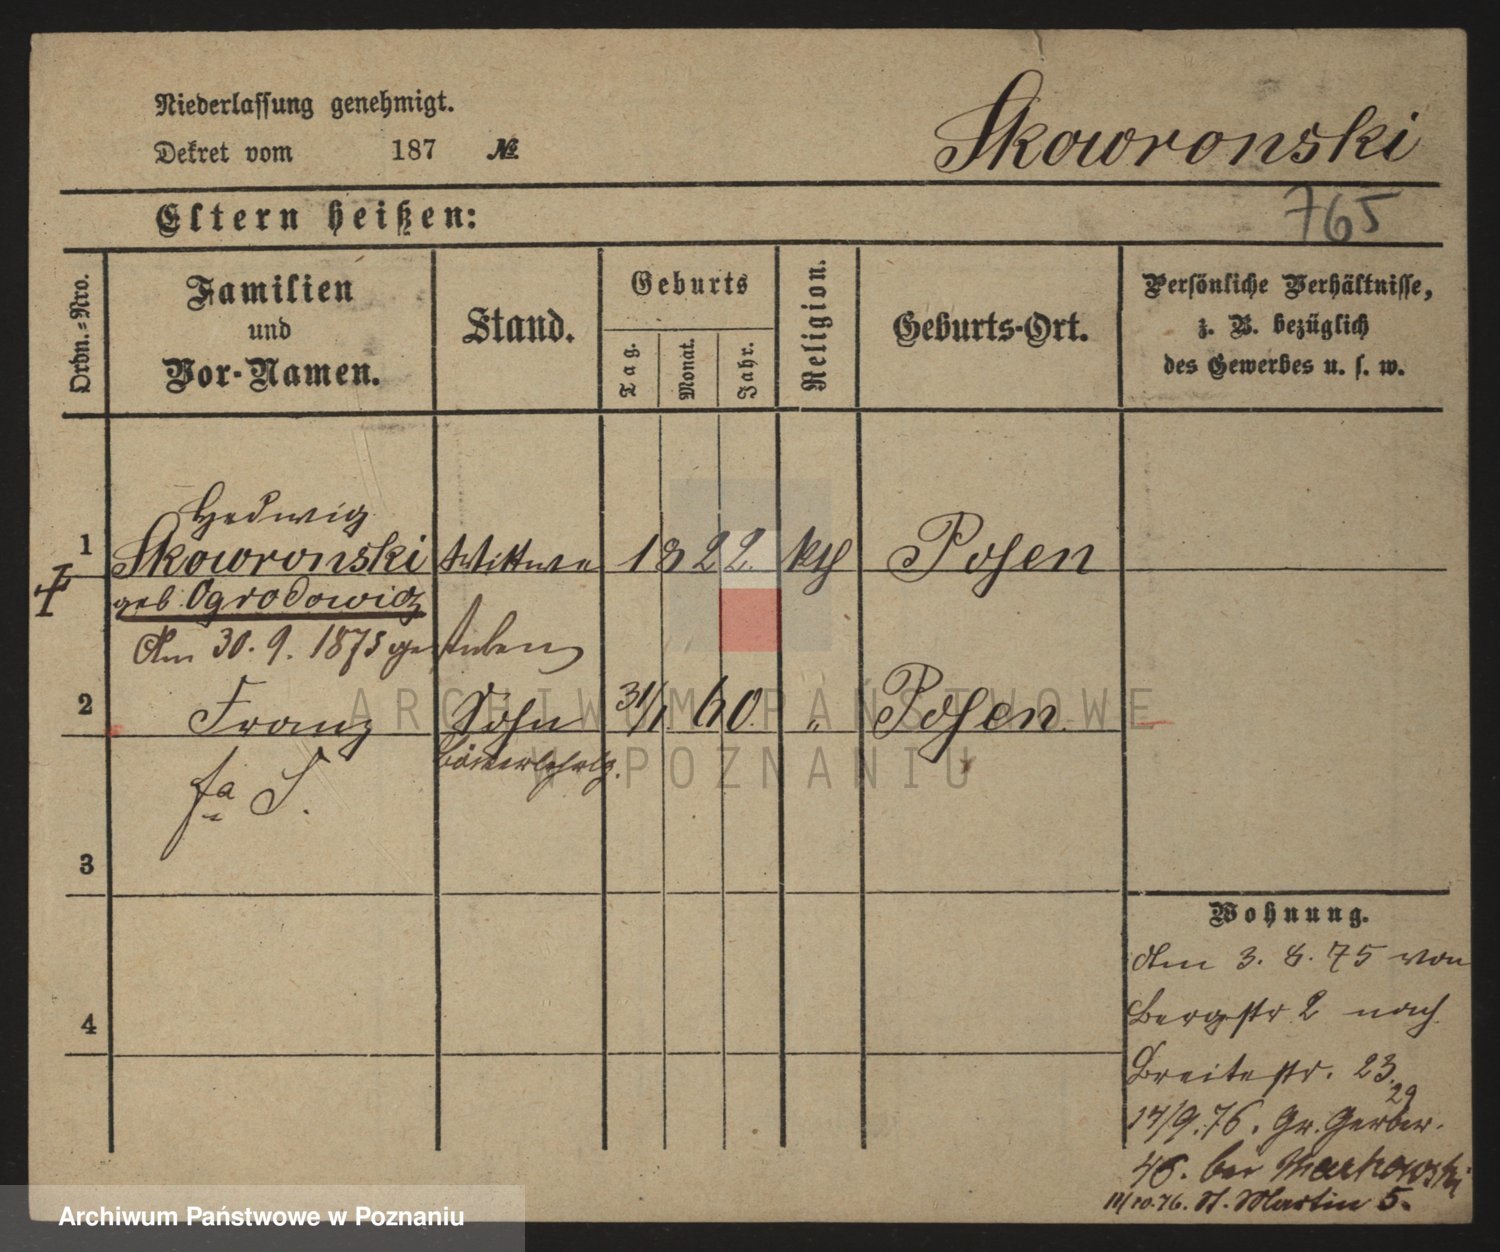 Niederlassung genehmigt.
Dekret vom 187 №
Skowronski
765
Eltern heißen:
Ordn.-Nro.
Familien und Vor-Namen.
Stand.
Geburts
Tag.
Monat.
Jahr.
Religion.
Geburts-Ort.
Persönliche Verhältnisse,
z. B. bezüglich
des Gewerbes u. s. w.
Hedwig
1 Skowronski Wittwe 1822. kth Posen
geb. Ogrodowicz
Am 30. 9. 1875 gestorben
2 Franz Sohn 31/1. 60. " Posen.
fa S.
3
4
Wohnung.
Am 3. 8. 75 von
Bergstr 2 nach
Breitestr. 23.
29
17/9.76. Gr. Gerber-
46. bei Markowski
11/10.76. St. Martin 5.
ARCHIWUM PAŃSTWOWE
W POZNANIU
Archiwum Państwowe w Poznaniu